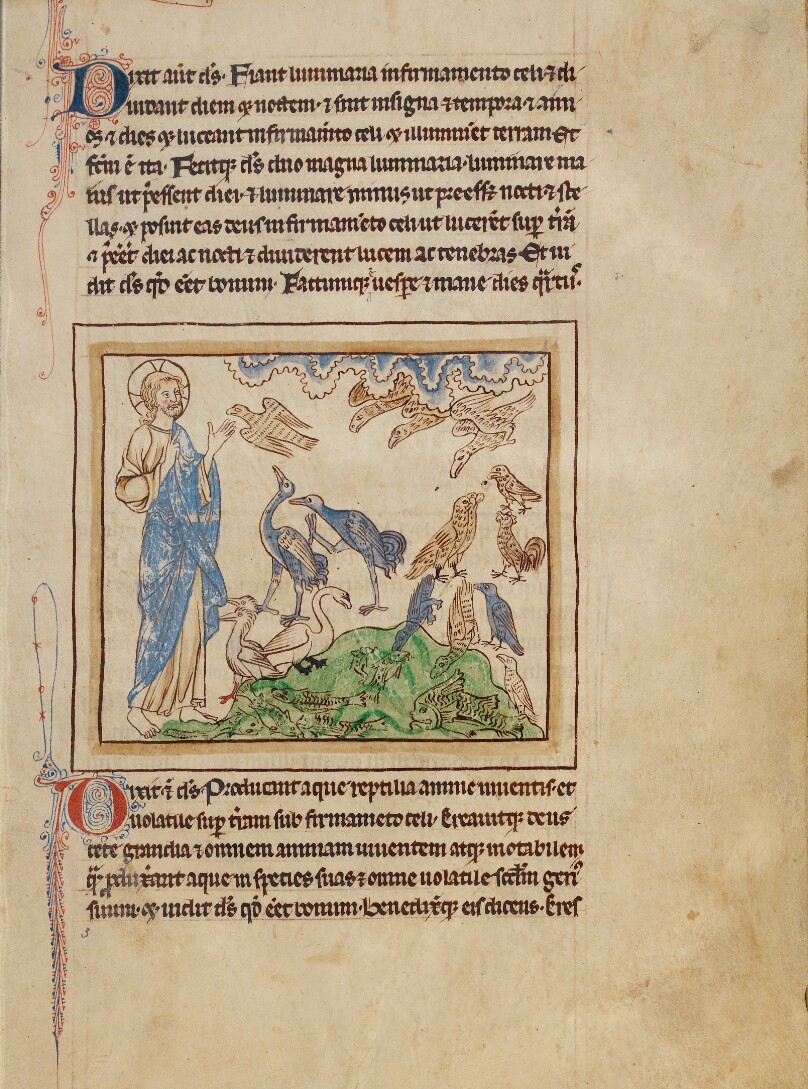 Dixit aūt d̄s. Fiant luminaria in firmamento celi ⁊ di
uidant diem ⁊ noctem. ⁊ sint in signa ⁊ tempora ⁊ ann
os ⁊ dies ⁊ luceant in firmam̄to celi ⁊ illuminēt terram. Et
fc̄m ē ita. Fecitq; d̄s duo magna luminaria. luminare ma
ius ut p̄essent diei. ⁊ luminare minus ut preess; nocti ⁊ ste
llas. ⁊ posuit eas deus in firmamēto celi ut lucerēt sup t̄rā
⁊ p̄eēt diei ac nocti ⁊ diuiderent lucem ac tenebras. Et ui
dit d̄s qđ eēt bonum. Factumq; uesp̄e ⁊ mane dies q̄rtus.
Dixit ⁊ d̄s Producant aque reptilia anime uiuentis. et
uolatile sup t̄ram sub firmamēto celi. Creauitq; deus
cete grandia ⁊ omnem animam uiuentem atq; motabilem
q̄ produx̄ant aque in species suas ⁊ omne uolatile scd̄m geñ
suum. ⁊ uidit d̄s qđ eēt bonum. Benedix̄q; eis dicens. Cres
3